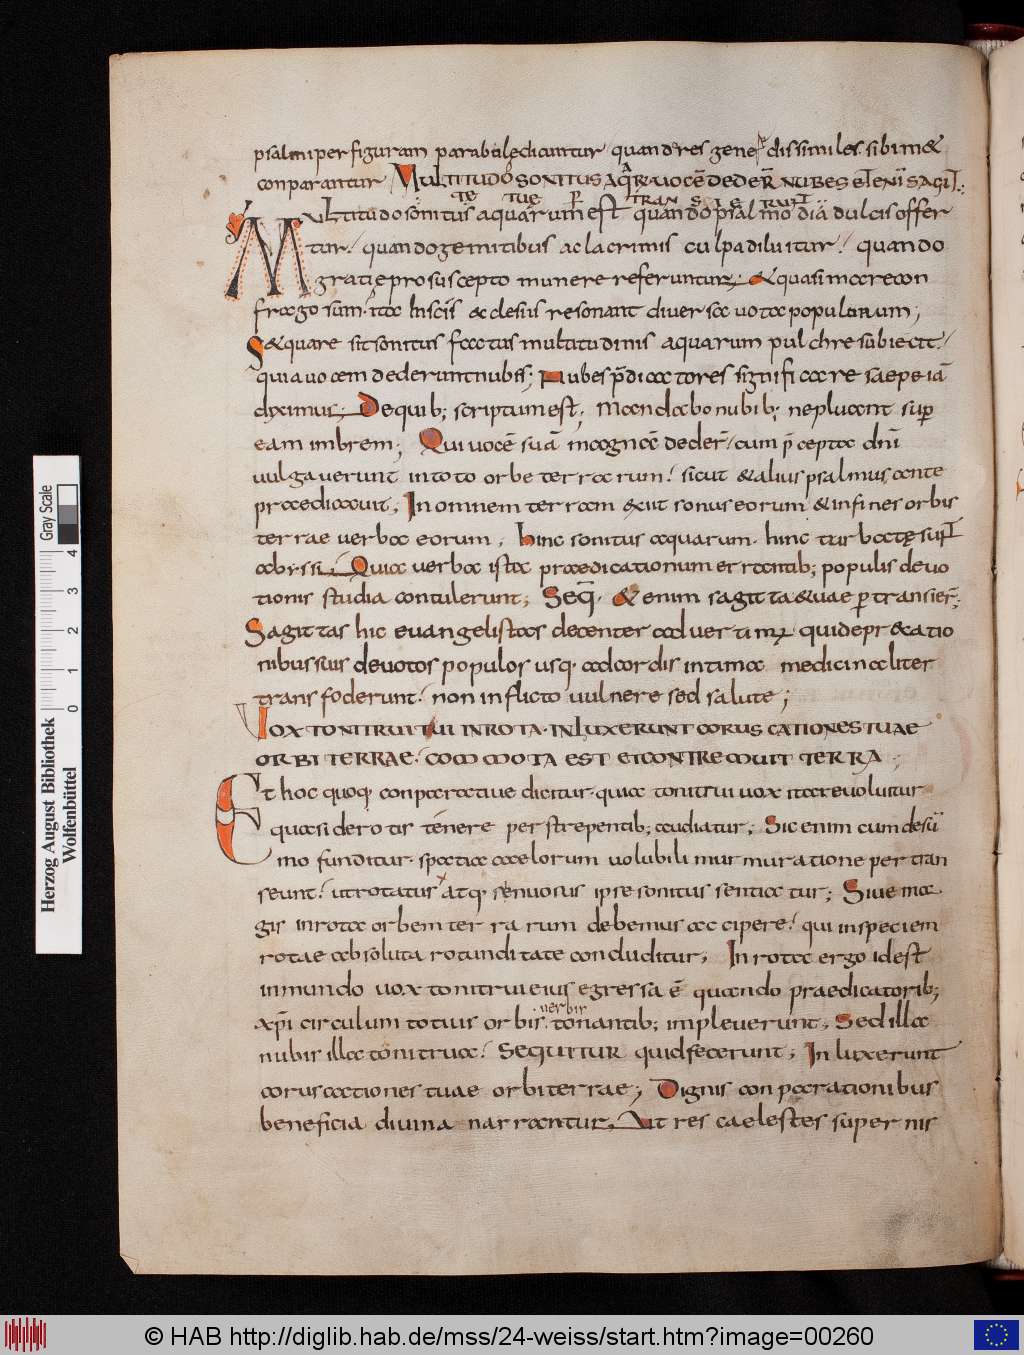 psalmi per figuram parabolę dicuntur quando res genere dissimiles sibim&
conparantur Multitudo sonitus aqr̄ uocē dedeř nubes et eni sagit
te tue p transierunt
Multitudo sonitus aquarum est quando psalmodia dulcis offer
tur / quando gemitibus ac lacrimis culpa diluitur / quando
gratie pro suscepto munere referuntur; & quasi mare con
frago sum ita In scis aeclesiis resonant diuersa uota populorum;
S& quare sit sonitus factus multitudinis aquarum pulchre subiecit /
quia uocem dederunt nubes; Nubes p̄dicatores significare saepe iā
diximus; De quib; scriptum est; Mandabo nubib; ne pluant sup
eam imbrem; Qui uocē suā magnā dedeř / cum p̄cepta dn̄i
uulgauerunt in toto orbe terrarum / sicut & alius psalmus ante
praedicauit; In omnem terram exiit sonus eorum & in fines orbis
terrae uerba eorum; hinc sonitus aquarum. hinc turbatę sunt
abyssi; Quia uerba ista praedicationum errantib; populis deuo
tionis studia contulerunt; Seq̄. & enim sagitta &uae p transieř;
Sagittas hic euangelistas decenter aduertimꝰ qui depr&catio
nibus suis deuotos populos usq. ad cordis intima medicinaliter
transfoderunt / non inflicto uulnere sed salute;
VOX TONITRUI TUI IN ROTA. INLUXERUNT CORUSCATIONES TUAE
ORBI TERRAE. COMMOTA EST ET CONTREMUIT TERRA;
Et hoc quoq. conparatiue dicitur. quia tonitrui uox ita reuoluitur
quasi de rotis tenere perstrepentib; audiatur; Sic enim cum desū
mo funditur. spatia caelorum uolubili murmuratione per tran
seunt / ut rotatus atq. senuosus ipse sonitus sentiatur; Siue ma
gis in rota orbem terrarum debemus accipere / qui in speciem
rotae absoluta rotunditate concluditur; In rota ergo id est
in mundo uox tonitrui eius egressa ē quando praedicatorib;
xpi circulum totius orbis uerbis tonantib; impleuerunt; Sed illa
nubis illa tonitrua / Sequitur quid fecerunt; In luxerunt
coruscationes tuae orbi terrae; Dignis conparationibus
beneficia diuina narrantur; Ut res caelestes supernis
Herzog August Bibliothek
Wolfenbüttel
0 1 2 3 4
Gray Scale
© HAB http://diglib.hab.de/mss/24-weiss/start.htm?image=00260